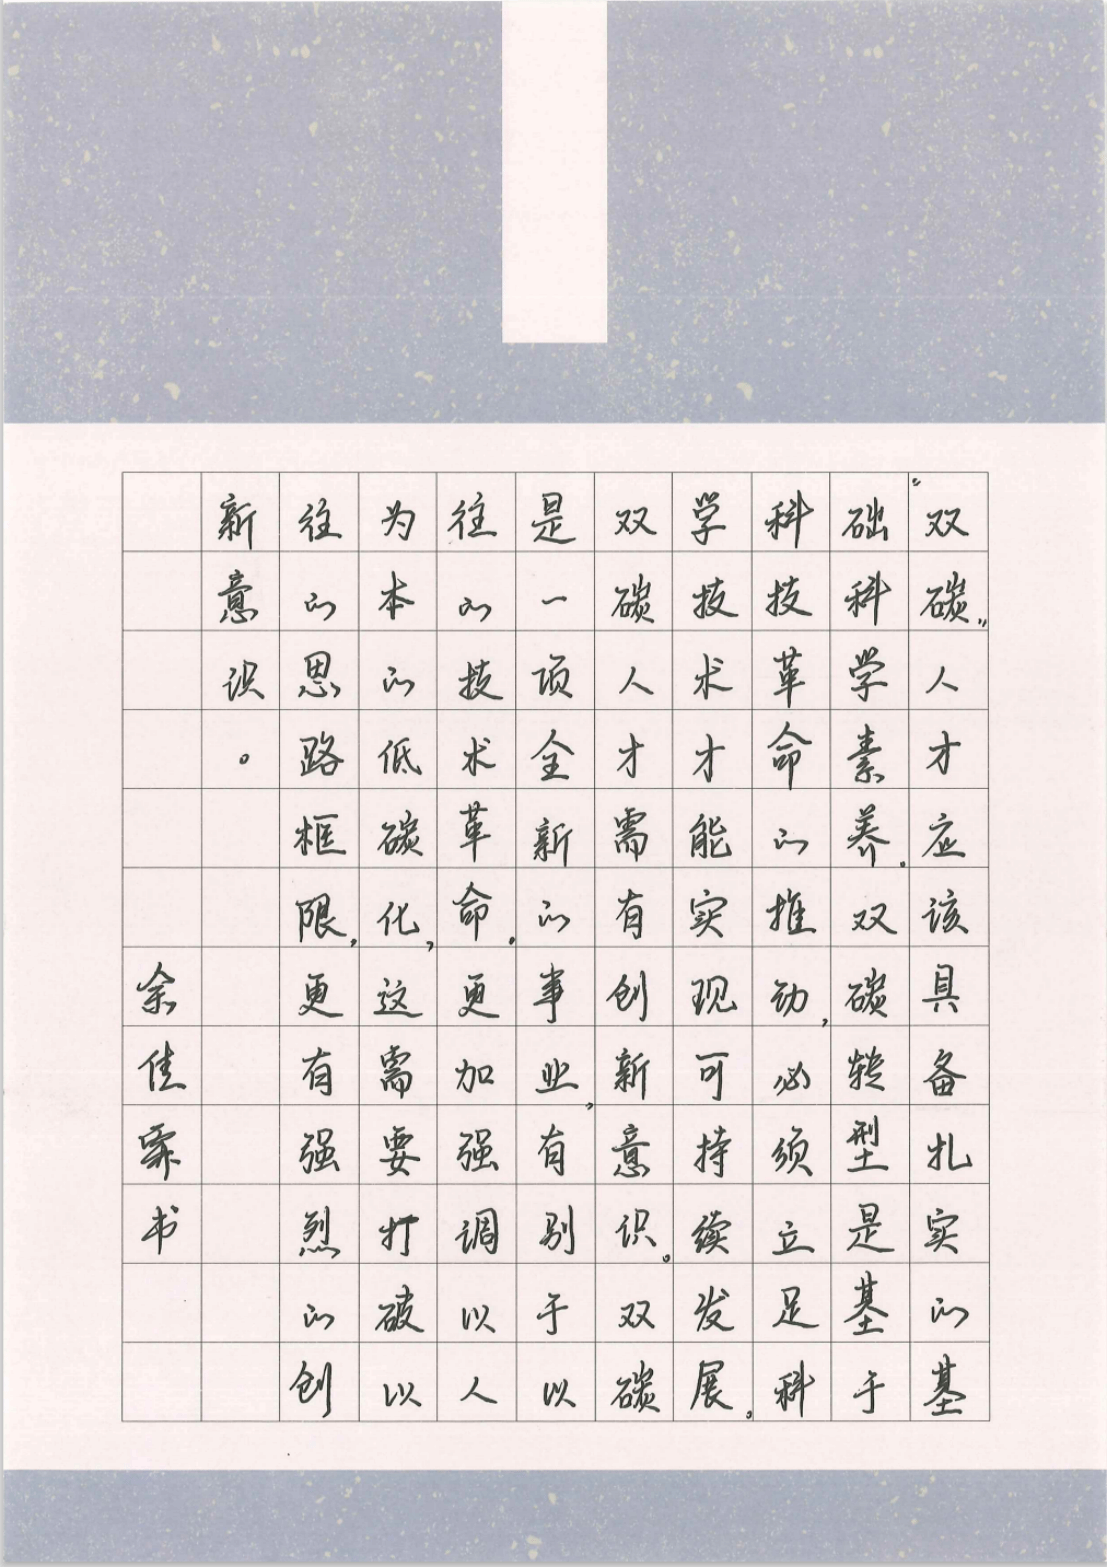 “双碳”人才应该具备扎实的基
础科学素养。双碳转型是基于
科技革命的推动,必须立足科
学技术才能实现可持续发展。
双碳人才需有创新意识。双碳
是一项全新的事业,有别于以
往的技术革命。更加强调以人
为本的低碳化,这需要打破以
往的思路框限,更有强烈的创
新意识。
余佳霏书